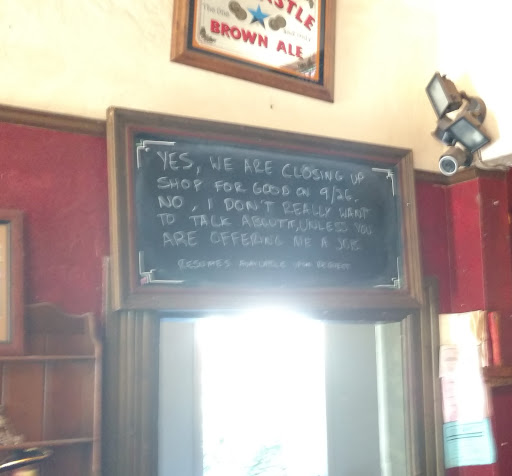 The One
CASTLE
BROWN ALE
YES, WE ARE CLOSING UP
SHOP FOR GOOD ON 9/26.
NO, I DON'T REALLY WANT
TO TALK ABOUT IT, UNLESS YOU
ARE OFFERING ME A JOB.
RESUMES AVAILABLE UPON REQUEST